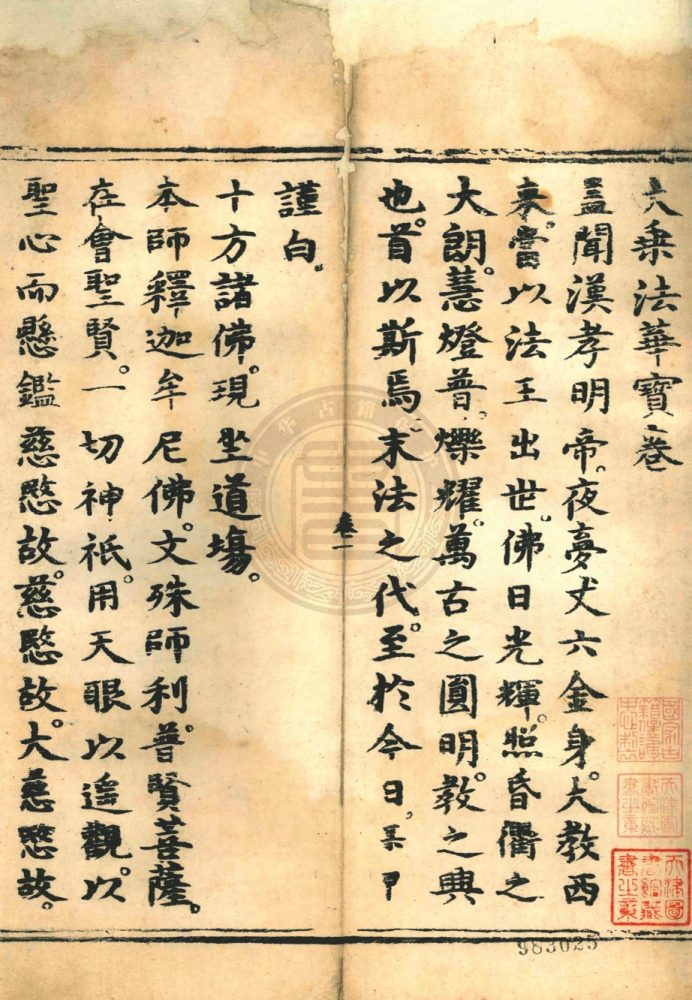 大乘法華寶、卷
盖聞漢孝明帝。夜夢丈六金身。大教西
来。當以法王出世。佛日光輝。照昏衢之
大朗。慧燈普、爍耀。萬古之圓明。教之興
也。首以斯焉。末法之代。至於今日,某甲
卷一
謹白。
十方諸佛。現坐道塲。
本師釋迦牟尼佛。文殊師利。普賢菩薩。
在會聖賢。一切神祇。用天眼以遙觀。以
聖心而懸鑑慈愍故。慈愍故。大慈愍故。
天津圖
書館藏
書之章
983025